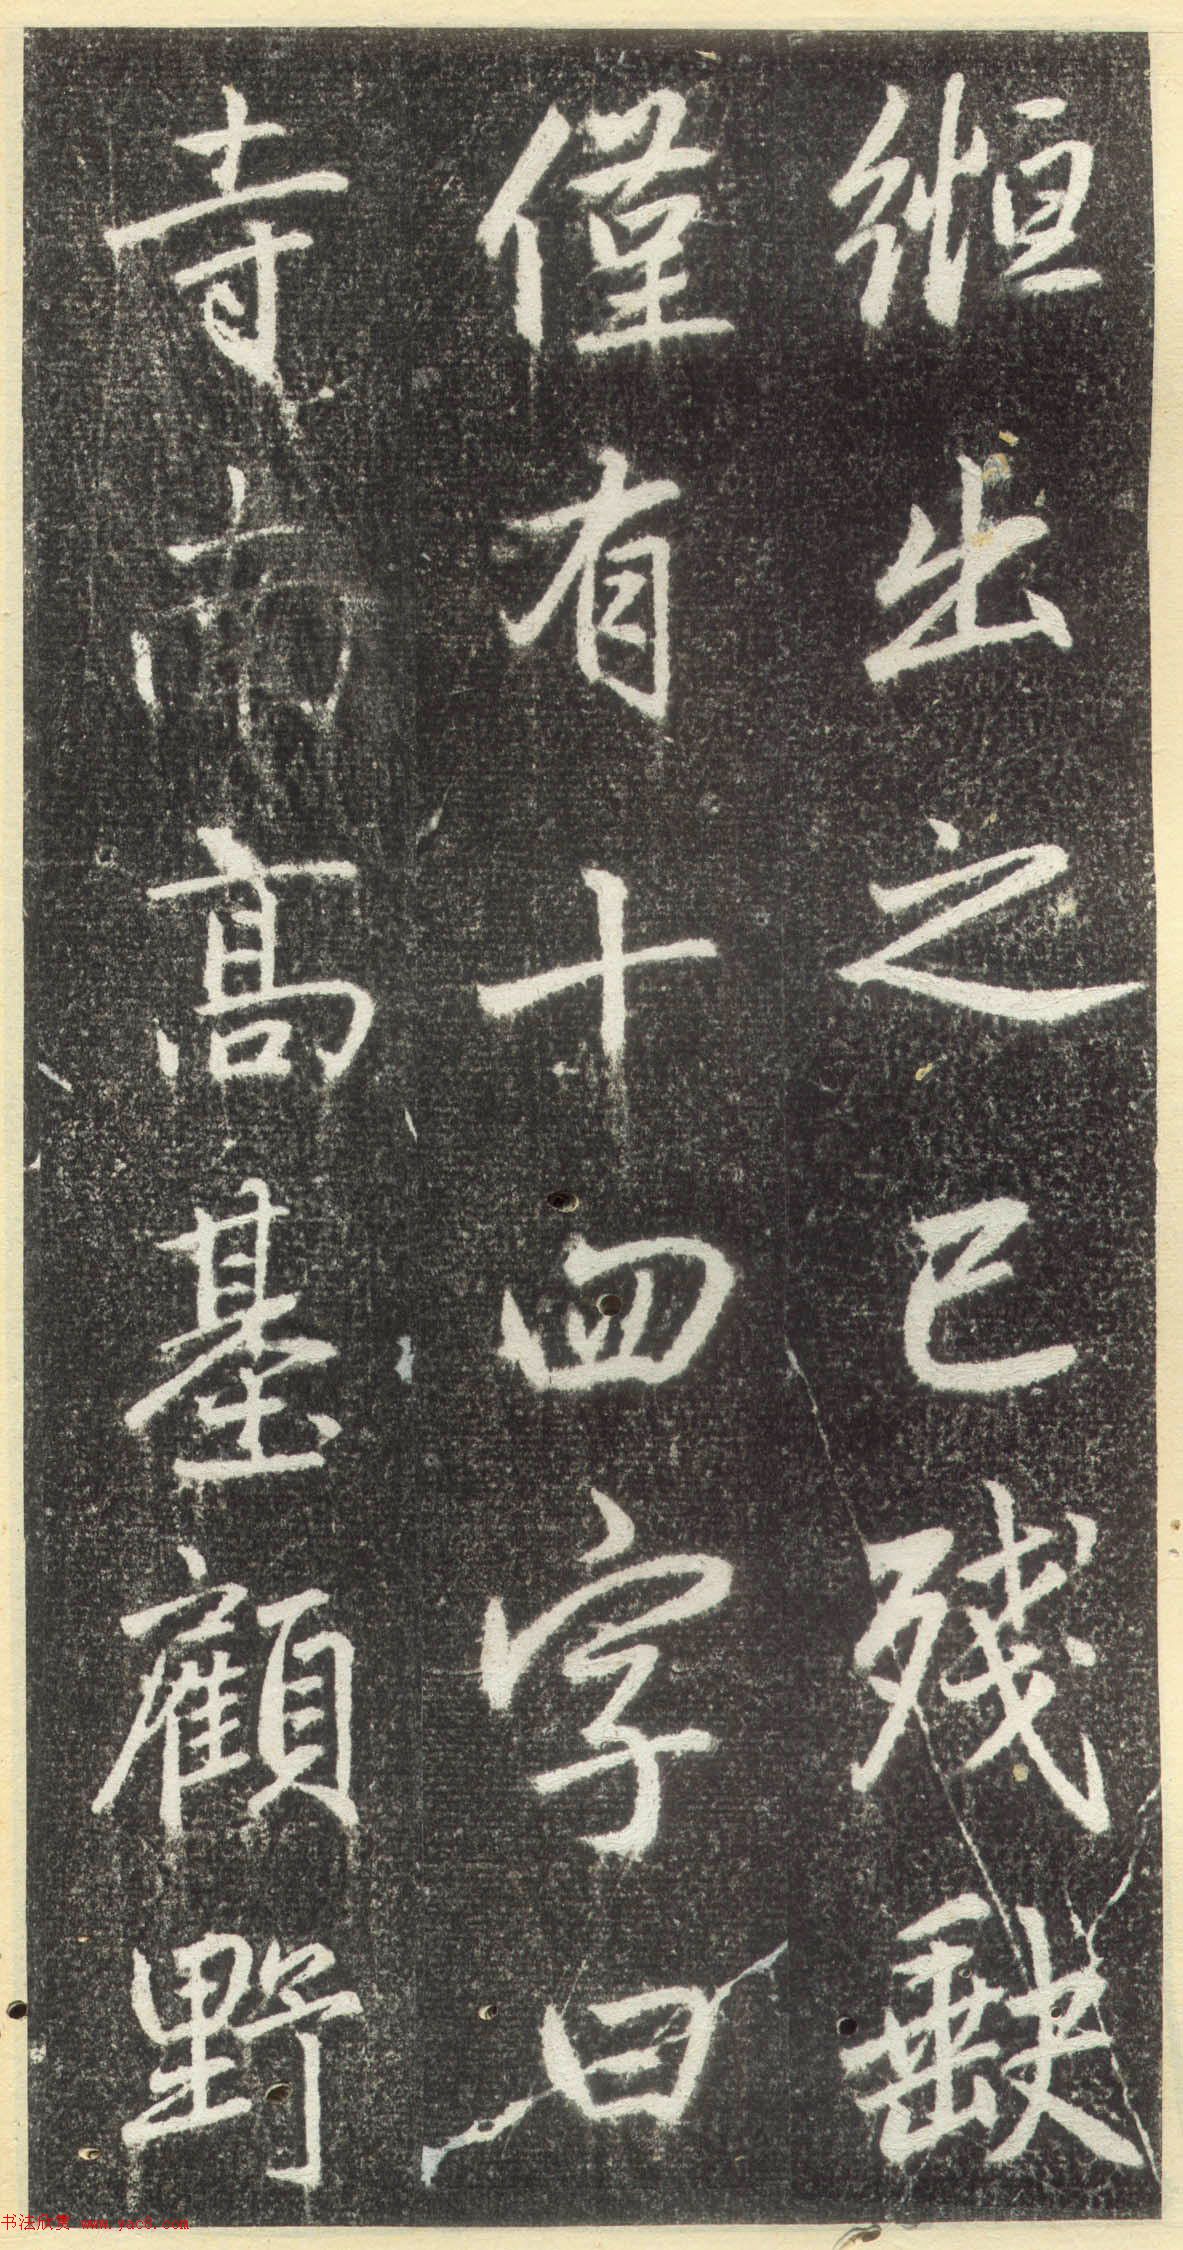 縆出之已殘缺
僅有十四字曰
寺南高基顧野
书法欣赏 www.yac8.com